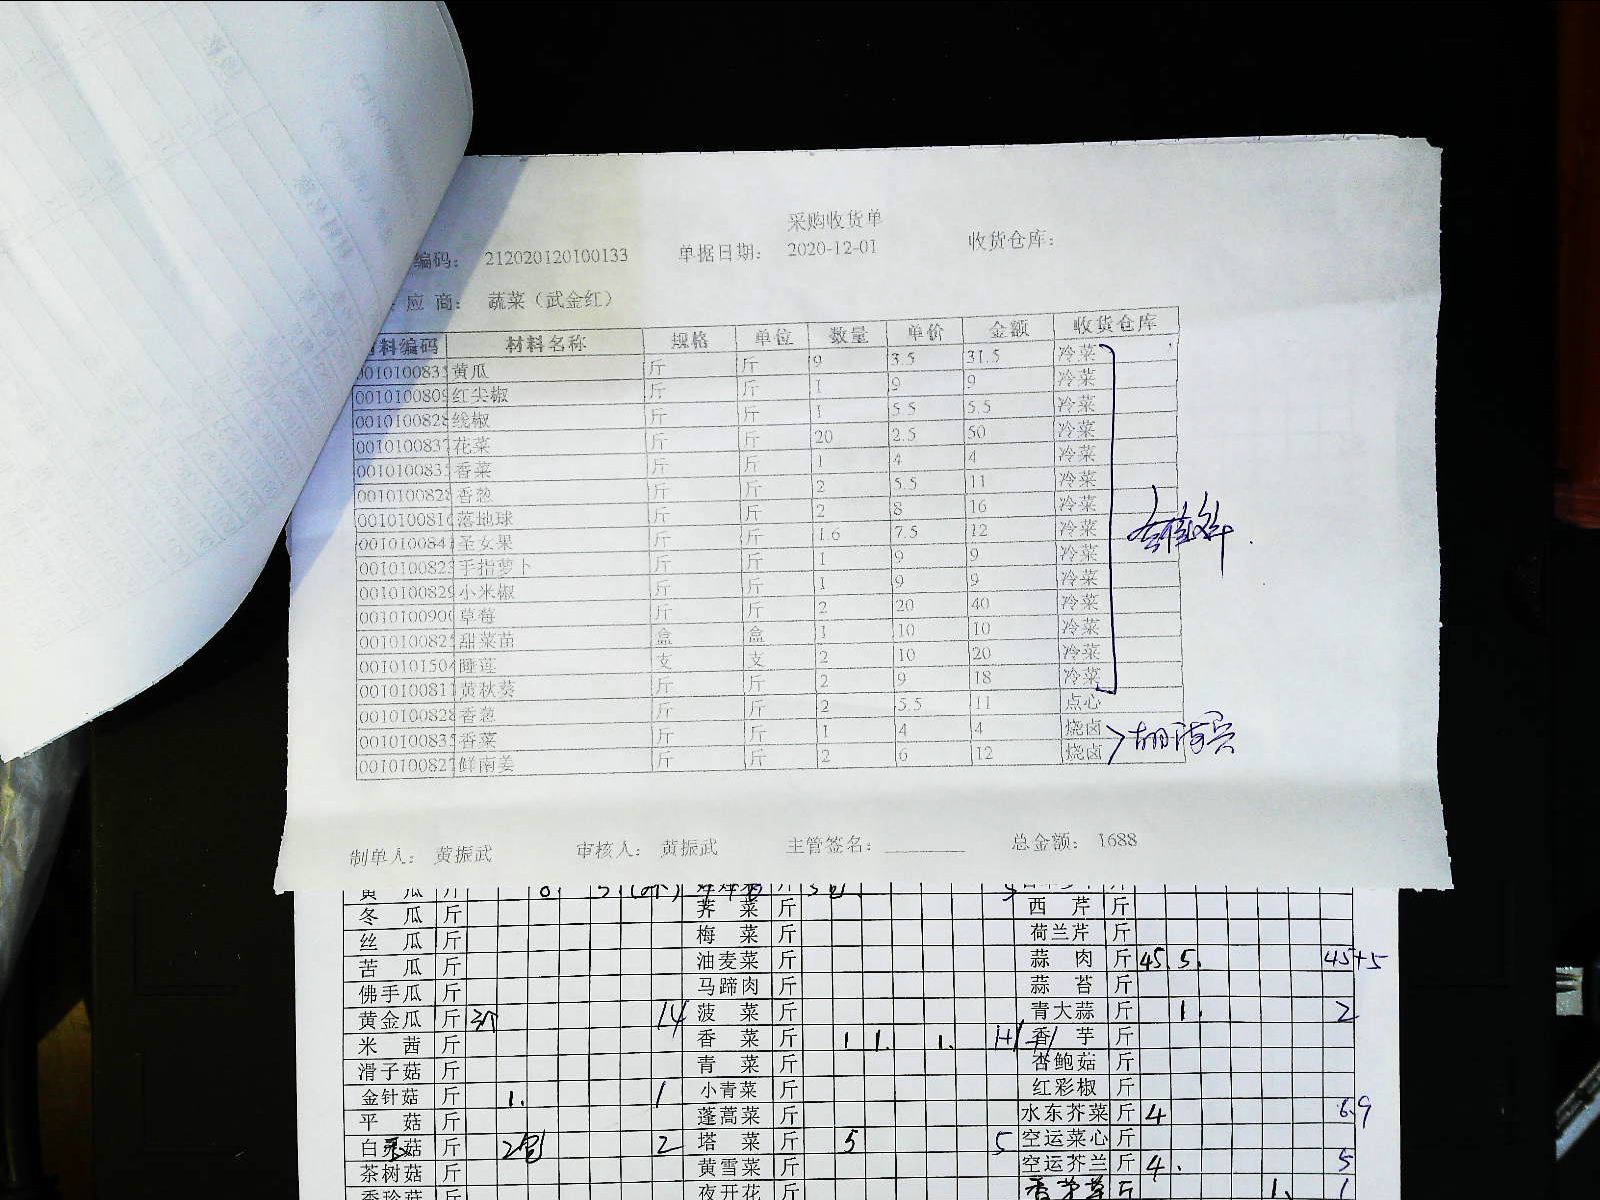 采购收货单
编码： 212020120100133 单据日期： 2020-12-01 收货仓库：
应 商： 蔬菜（武金红）
料编码 材料名称 规格 单位 数量 单价 金额 收货仓库
001010083 黄瓜 斤 斤 9 3.5 31.5 冷菜
001010080 红尖椒 斤 斤 1 9 9 冷菜
001010082 线椒 斤 斤 1 5.5 5.5 冷菜
001010083 花菜 斤 斤 20 2.5 50 冷菜
001010083 香菜 斤 斤 1 4 4 冷菜
001010082 香葱 斤 斤 2 5.5 11 冷菜
001010081 落地球 斤 斤 2 8 16 冷菜
001010084 圣女果 斤 斤 1.6 7.5 12 冷菜
001010082 手指萝卜 斤 斤 1 9 9 冷菜
001010082 小米椒 斤 斤 1 9 9 冷菜
001010090 草莓 斤 斤 2 20 40 冷菜
001010082 甜菜苗 盒 盒 1 10 10 冷菜
001010150 睡莲 支 支 2 10 20 冷菜
001010081 黄秋葵 斤 斤 2 9 18 冷菜
001010082 香葱 斤 斤 2 5.5 11 点心
001010083 香菜 斤 斤 1 4 4 烧卤
001010082 鲜南姜 斤 斤 2 6 12 烧卤
制单人： 黄振武 审核人： 黄振武 主管签名： 总金额： 1688
黄 瓜 斤
冬 瓜 斤 荠 菜 斤 西 芹 斤
丝 瓜 斤 梅 菜 斤 荷兰芹 斤
苦 瓜 斤 油麦菜 斤 蒜 肉 斤 45. 5. 45+5
佛手瓜 斤 马蹄肉 斤 蒜 苔 斤
黄金瓜 斤 3个 14 菠 菜 斤 青大蒜 斤 1. 2
米 茜 斤 香 菜 斤 1 1. 1. 香 芋 斤
滑子菇 斤 青 菜 斤 杏鲍菇 斤
金针菇 斤 1. 1 小青菜 斤 红彩椒 斤
平 菇 斤 蓬蒿菜 斤 水东芥菜 斤 4 6.9
白 菇 斤 2包 2 塔 菜 斤 5 5 空运菜心 斤
茶树菇 斤 黄雪菜 斤 空运芥兰 斤 4. 5
夜开花 斤 香茅草 斤 1. 1